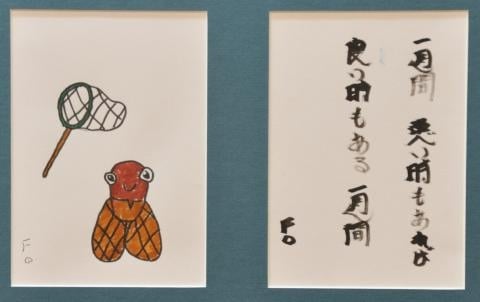 一週間 悪い時もあれば
良い時もある 一週間
F
O
F
O